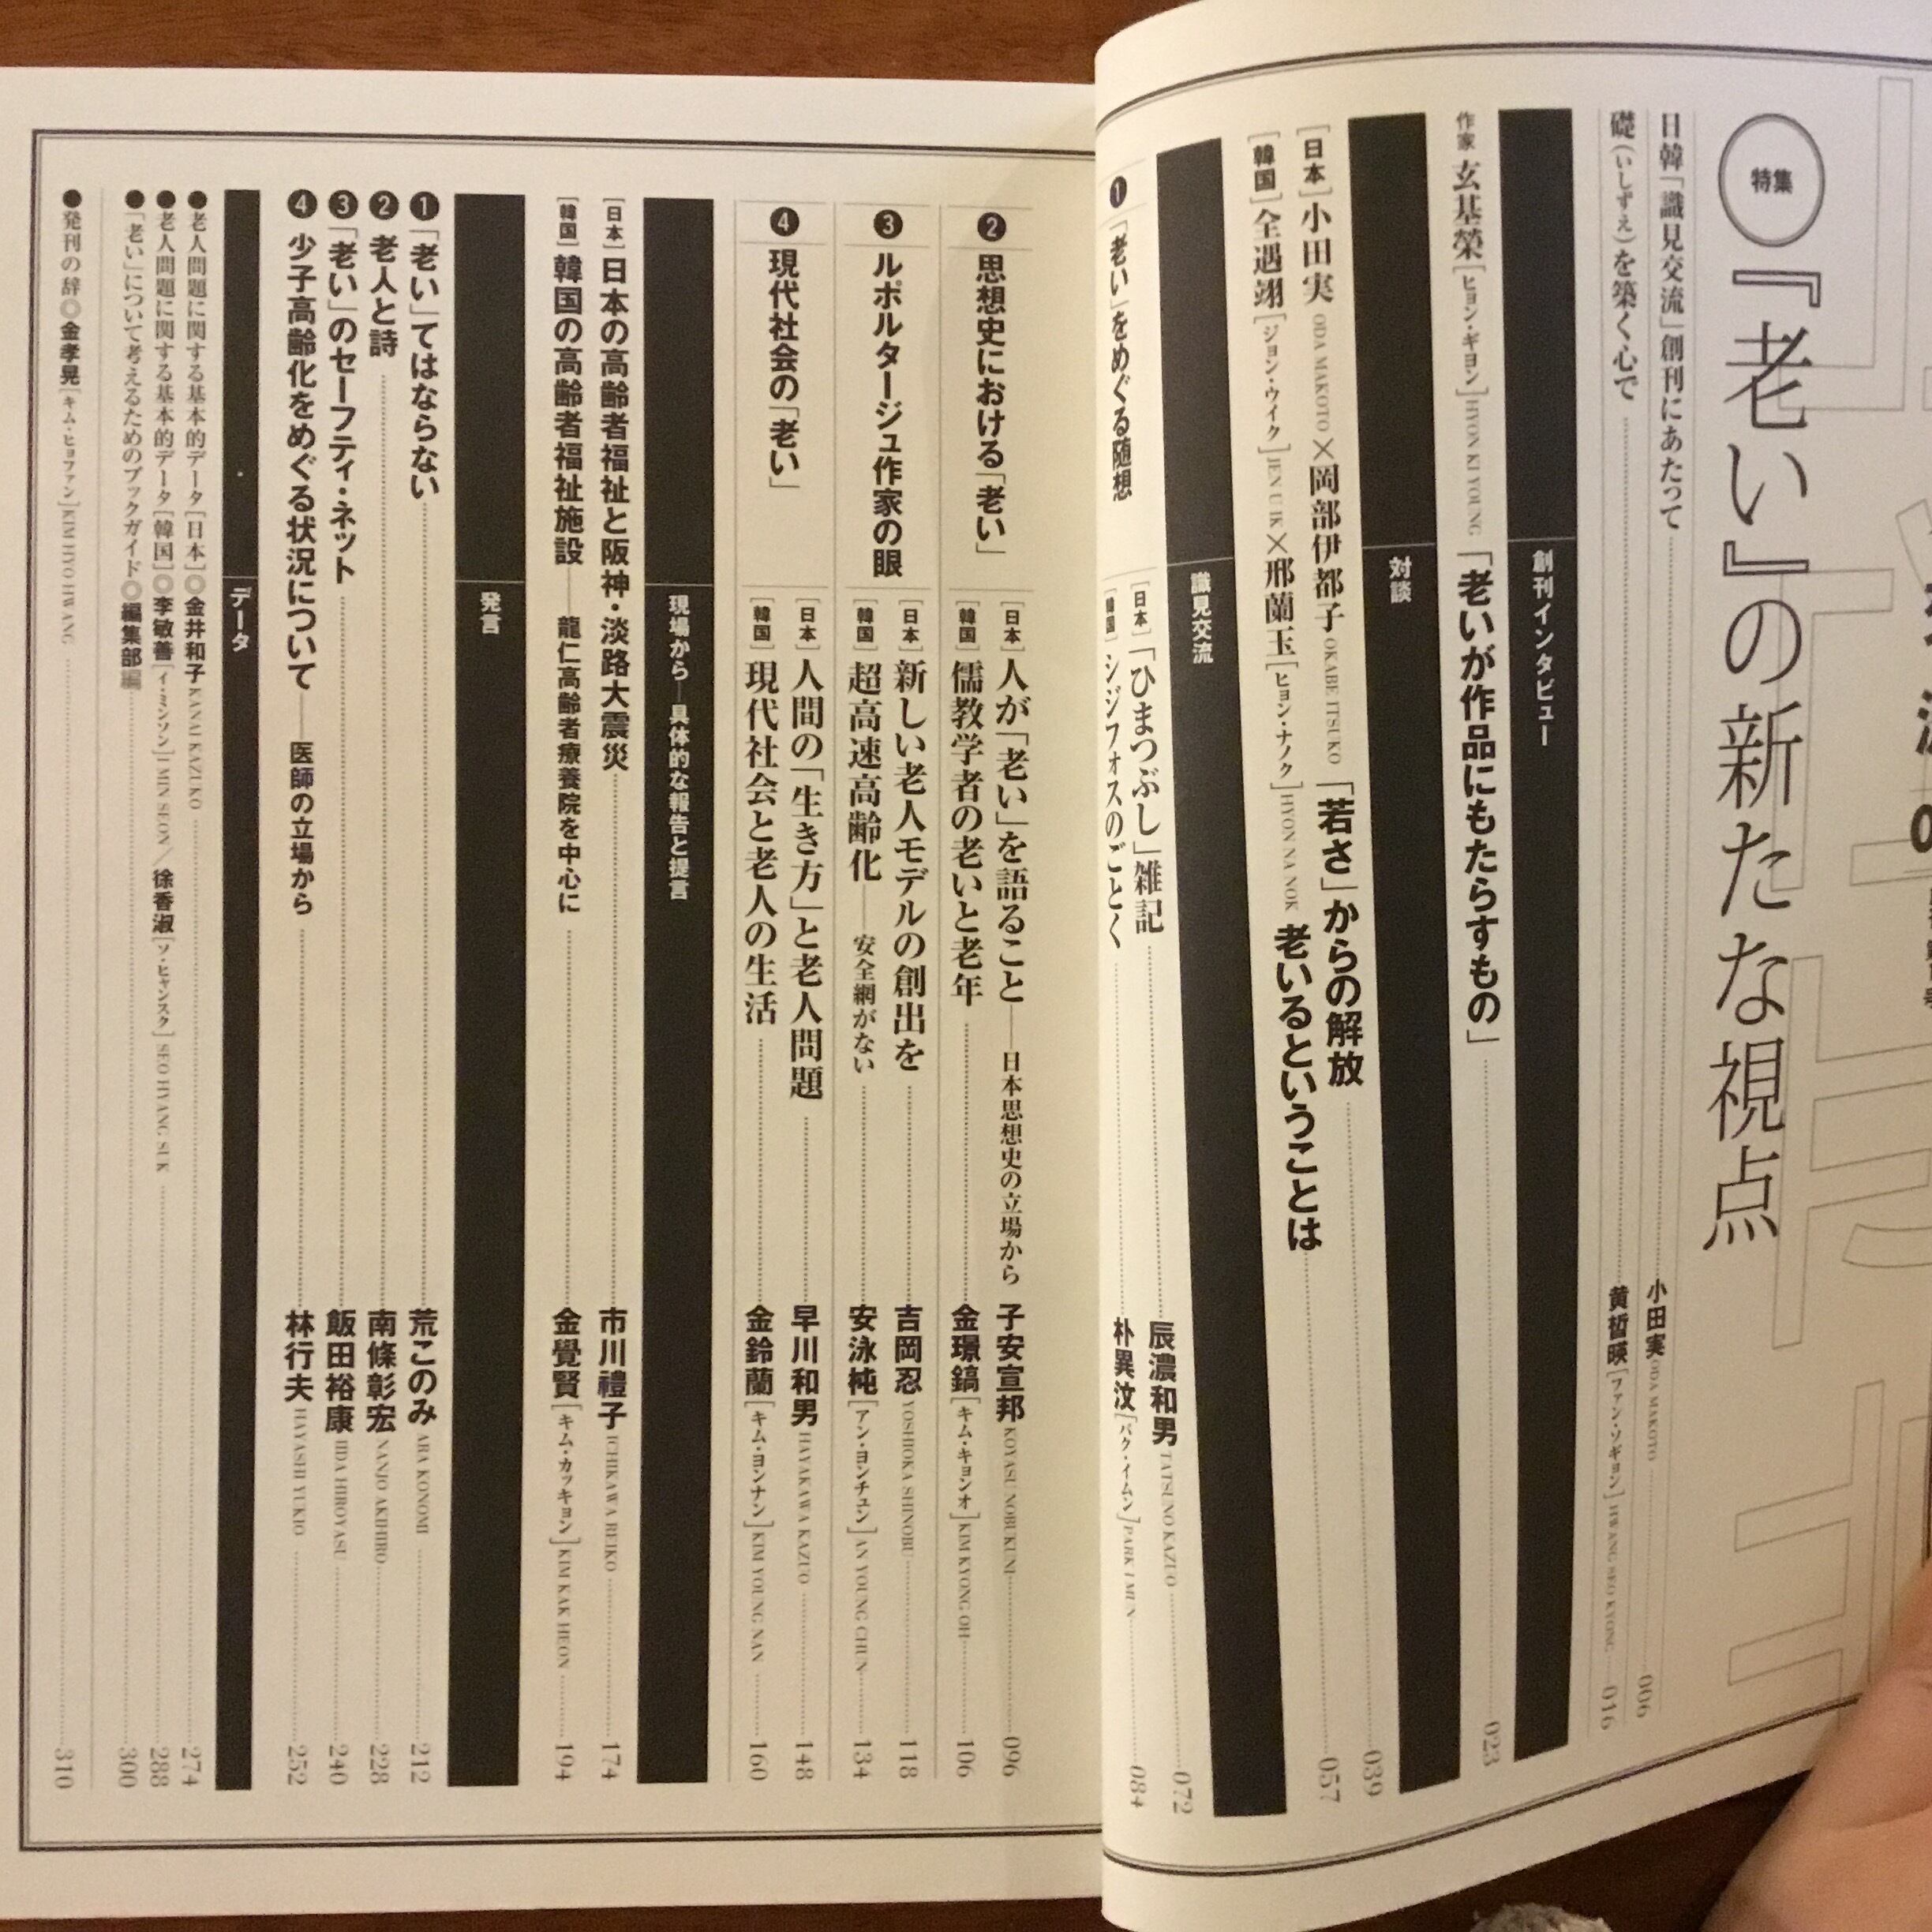 特集
『老い』の新たな視点
日韓「識見交流」創刊にあたって 小田実 ODA MAKOTO 006
礎(いしずえ)を築く心で 黄晳暎[ファン・ソギョン] HWANG SEO KYONG 016
創刊インタビュー
作家 玄基榮[ヒョン・ギヨン] HYON KI YOUNG 「老いが作品にもたらすもの」 023
対談
[日本]小田実 ODA MAKOTO×岡部伊都子 OKABE ITSUKO 「若さ」からの解放 039
[韓国]全遇翊[ジョン・ウイク] JEN U IK×邢蘭玉[ヒョン・ナノク] HYON NA NOK 老いるということは 057
識見交流
❶「老い」をめぐる随想
[日本]「ひまつぶし」雑記 辰濃和男 TATSUNO KAZUO 072
[韓国]シジフォスのごとく 朴異汶[パク・イムン] PARK I MUN 084
❷思想史における「老い」
[日本]人が「老い」を語ること──日本思想史の立場から 子安宣邦 KOYASU NOBUKUNI 096
[韓国]儒教学者の老いと老年 金璟鎬[キム・キョンオ] KIM KYONG OH 106
❸ルポルタージュ作家の眼
[日本]新しい老人モデルの創出を 吉岡忍 YOSHIOKA SHINOBU 118
[韓国]超高速高齢化──安全網がない 安泳杶[アン・ヨンチュン] AN YOUNG CHUN 134
❹現代社会の「老い」
[日本]人間の「生き方」と老人問題 早川和男 HAYAKAWA KAZUO 148
[韓国]現代社会と老人の生活 金鈴蘭[キム・ヨンナン] KIM YOUNG NAN 160
現場から──具体的な報告と提言
[日本]日本の高齢者福祉と阪神・淡路大震災 市川禮子 ICHIKAWA REIKO 174
[韓国]韓国の高齢者福祉施設──龍仁高齢者療養院を中心に 金覺賢[キム・カッキョン] KIM KAK HEON 194
発言
❶「老い」てはならない 荒このみ ARA KONOMI 212
❷老人と詩 南條彰宏 NANJO AKIHIRO 228
❸「老い」のセーフティ・ネット 飯田裕康 IIDA HIROYASU 240
❹少子高齢化をめぐる状況について──医師の立場から 林行夫 HAYASHI YUKIO 252
データ
●老人問題に関する基本的データ[日本]◎金井和子 KANAI KAZUKO 274
●老人問題に関する基本的データ[韓国]◎李敏善[イ・ミンソン] I MIN SEON／徐香淑[ソ・ヒャンスク] SEO HYANG SUK 288
●「老い」について考えるためのブックガイド◎編集部編 300
●発刊の辞◎金孝晃[キム・ヒョファン] KIM HYO HWANG 310